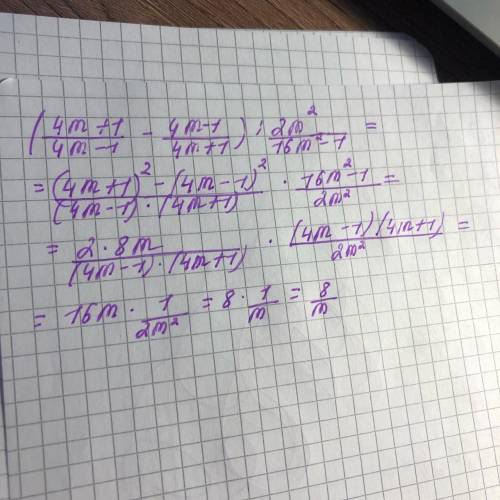 ((4m+1)/(4m-1) - (4m-1)/(4m+1)) : 2m²/(16m²-1) =
= ((4m+1)² - (4m-1)²)/((4m-1)·(4m+1)) · (16m²-1)/(2m²) =
= (2·8m)/((4m-1)·(4m+1)) · ((4m-1)(4m+1))/(2m²) =
= 16m · 1/(2m²) = 8 · 1/m = 8/m